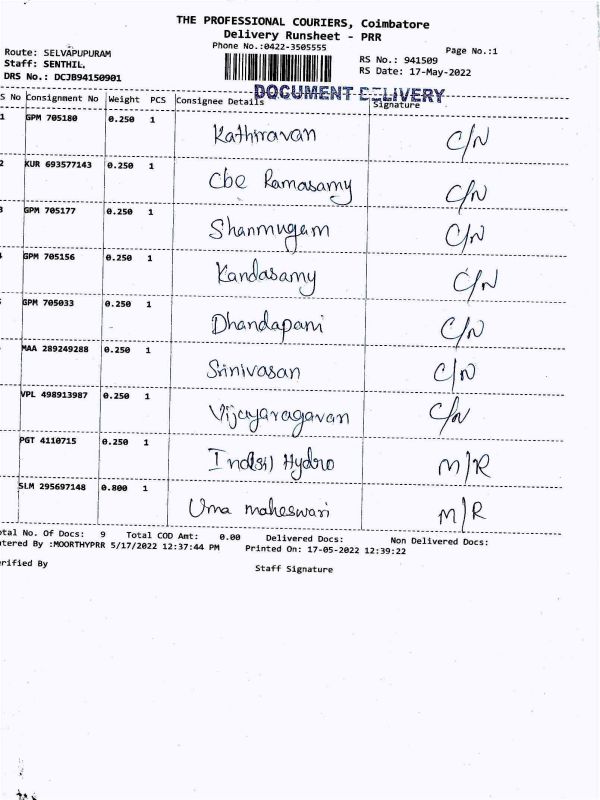 THE PROFESSIONAL COURIERS, Coimbatore
Delivery Runsheet - PRR
Phone No.:0422-3505555
Page No.:1
Route: SELVAPUPURAM
RS No.: 941509
Staff: SENTHIL.
RS Date: 17-May-2022
DRS No.: DCJB94150901
DOCUMENT DELIVERY
S No Consignment No Weight PCS Consignee Details Signature
1 GPM 705180 0.250 1 Kathiravan C/N
2 KUR 693577143 0.250 1 Cbe Ramasamy C/N
3 GPM 705177 0.250 1 Shanmugam C/N
GPM 705156 0.250 1 Kandasamy C/N
GPM 705033 0.250 1 Dhandapani C/N
MAA 289249288 0.250 1 Srinivasan C/N
VPL 498913987 0.250 1 Vijayaragavan C/N
PGT 4110715 0.250 1 Indsil Hydro M/R
SLM 295697148 0.800 1 Uma maheswari M/R
otal No. Of Docs: 9 Total COD Amt: 0.00 Delivered Docs: Non Delivered Docs:
ntered By :MOORTHYPRR 5/17/2022 12:37:44 PM Printed On: 17-05-2022 12:39:22
erified By
Staff Signature